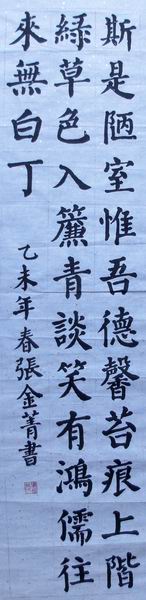 斯是陋室惟吾德馨苔痕上階
綠草色入簾青談笑有鴻儒往
來無白丁
乙未年春張金菁書